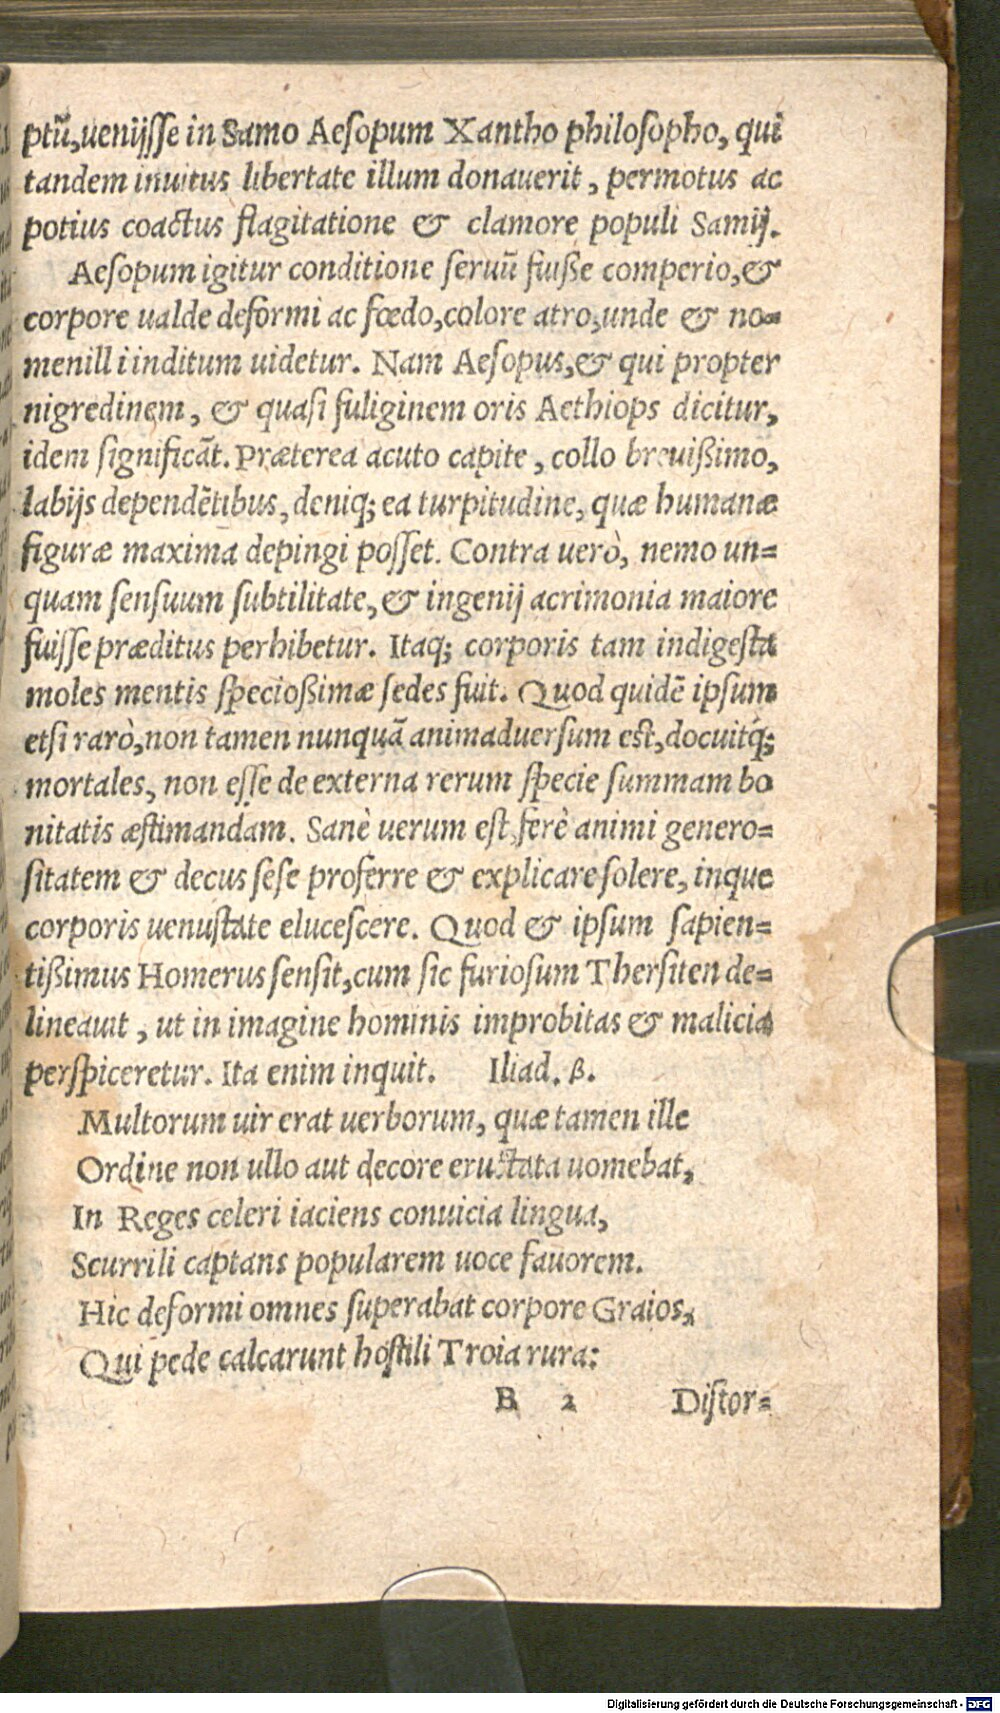 ptū, ueniſſe in Samo Aeſopum Xantho philoſopho, qui
tandem inuitus libertate illum donauerit, permotus ac
potius coactus flagitatione & clamore populi Samij.
Aeſopum igitur conditione ſeruū fuiße comperio, &
corpore ualde deformi ac fœdo, colore atro, unde & no=
men illi inditum uidetur. Nam Aeſopus, & qui propter
nigredinem, & quaſi fuliginem oris Aethiops dicitur,
idem ſignificāt. Præterea acuto capite, collo breuißimo,
labijs dependētibus, deniq; ea turpitudine, quæ humanæ
figuræ maxima depingi poſſet. Contra uerò, nemo un=
quam ſenſuum ſubtilitate, & ingenij acrimonia maiore
fuiſſe præditus perhibetur. Itaq; corporis tam indigeſta
moles mentis ſpecioßimæ ſedes fuit. Quod quidē ipſum
etſi rarò, non tamen nunquā animaduerſum eſt, docuitq́;
mortales, non eſſe de externa rerum ſpecie ſummam bo
nitatis æſtimandam. Sanè uerum eſt, ferè animi genero=
ſitatem & decus ſeſe proferre & explicare ſolere, inque
corporis uenuſtate eluceſcere. Quod & ipſum ſapien=
tißimus Homerus ſenſit, cum ſic furioſum Therſiten de=
lineauit, ut in imagine hominis improbitas & malicia
perſpiceretur. Ita enim inquit. Iliad. β.
Multorum uir erat uerborum, quæ tamen ille
Ordine non ullo aut decore eructata uomebat,
In Reges celeri iaciens conuicia lingua,
Scurrili captans popularem uoce fauorem.
Hic deformi omnes ſuperabat corpore Graios,
Qui pede calcarunt hoſtili Troia rura:
B 2 Diſtor=
Digitalisierung gefördert durch die Deutsche Forschungsgemeinschaft - DFG